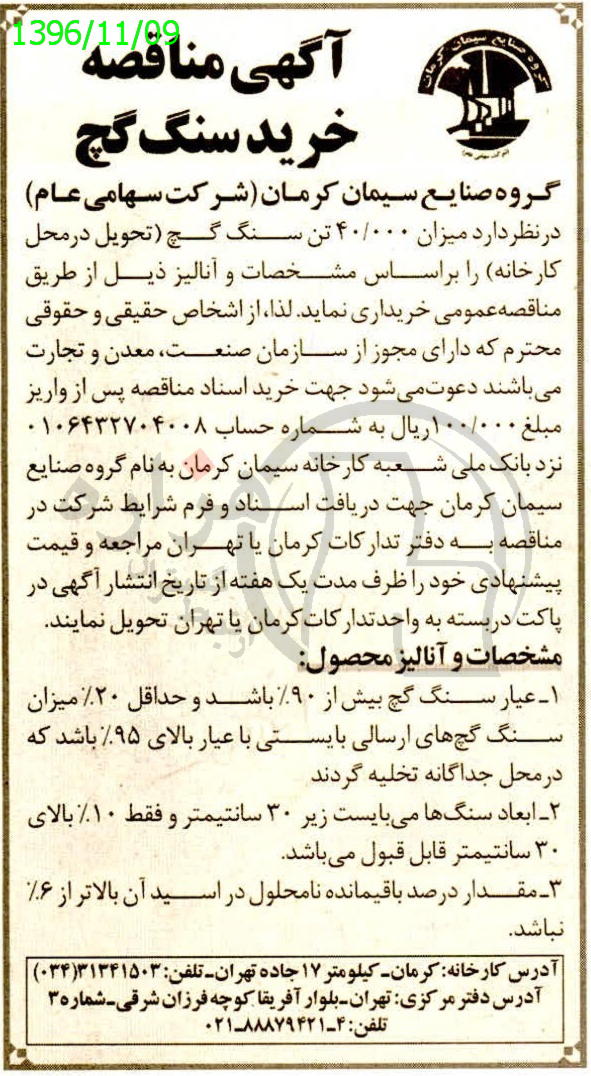 1396/11/09
گروه صنایع سیمان کرمان
(شرکت سهامی عام)
آگهی مناقصه
خرید سنگ گچ
گروه صنایع سیمان کرمان (شرکت سهامی عام)
در نظر دارد میزان ۴۰/۰۰۰ تن سنگ گچ (تحویل در محل
کارخانه) را براساس مشخصات و آنالیز ذیل از طریق
مناقصه عمومی خریداری نماید. لذا، از اشخاص حقیقی و حقوقی
محترم که دارای مجوز از سازمان صنعت، معدن و تجارت
می‌باشند دعوت می‌شود جهت خرید اسناد مناقصه پس از واریز
مبلغ ۱۰۰/۰۰۰ ریال به شماره حساب ۰۱۰۶۴۳۲۷۰۴۰۰۸
نزد بانک ملی شعبه کارخانه سیمان کرمان به نام گروه صنایع
سیمان کرمان جهت دریافت اسناد و فرم شرایط شرکت در
مناقصه به دفتر تدارکات کرمان یا تهران مراجعه و قیمت
پیشنهادی خود را ظرف مدت یک هفته از تاریخ انتشار آگهی در
پاکت دربسته به واحد تدارکات کرمان یا تهران تحویل نمایند.
مشخصات و آنالیز محصول:
۱ـ عیار سنگ گچ بیش از ۹۰٪ باشد و حداقل ۲۰٪ میزان
سنگ گچ‌های ارسالی بایستی با عیار بالای ۹۵٪ باشد که
در محل جداگانه تخلیه گردند
۲ـ ابعاد سنگ‌ها می‌بایست زیر ۳۰ سانتیمتر و فقط ۱۰٪ بالای
۳۰ سانتیمتر قابل قبول می‌باشد.
۳ـ مقدار درصد باقیمانده نامحلول در اسید آن بالاتر از ۶٪
نباشد.
آدرس کارخانه: کرمان ـ کیلومتر ۱۷ جاده تهران ـ تلفن: ۳۱۳۴۱۵۰۳(۰۳۴)
آدرس دفتر مرکزی: تهران ـ بلوار آفریقا کوچه فرزان شرقی ـ شماره ۳
تلفن: ۴ـ ۸۸۸۷۹۴۲۱ـ۰۲۱